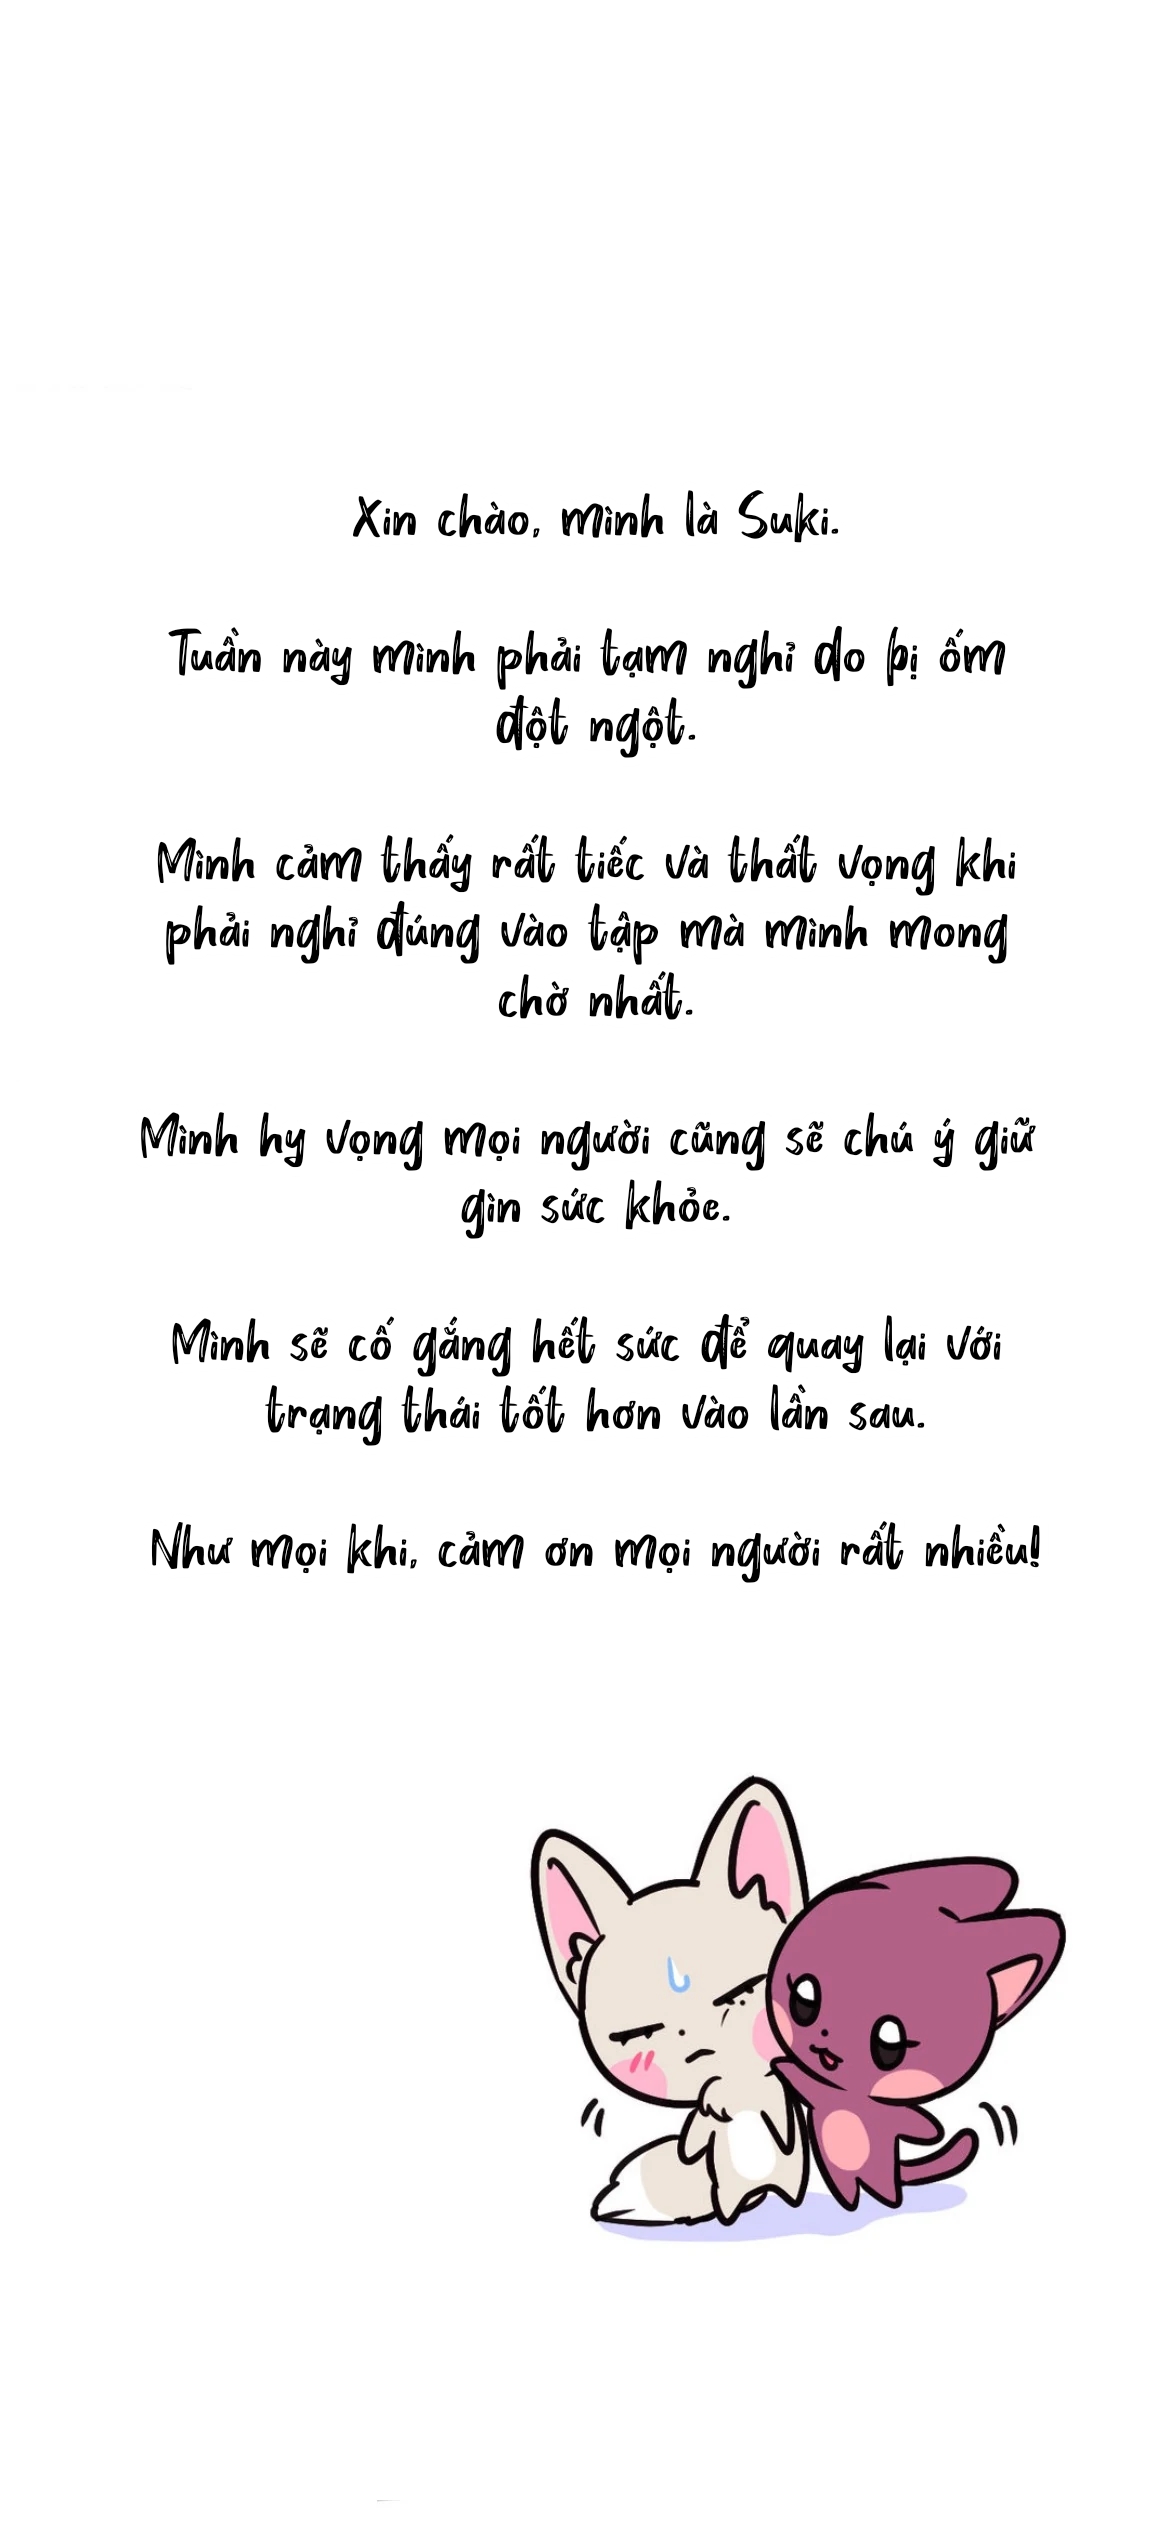 Xin chào, mình là Suki.
Tuần này mình phải tạm nghỉ do bị ốm
đột ngột.
Mình cảm thấy rất tiếc và thất vọng khi
phải nghỉ đúng vào tập mà mình mong
chờ nhất.
Mình hy vọng mọi người cũng sẽ chú ý giữ
gìn sức khỏe.
Mình sẽ cố gắng hết sức để quay lại với
trạng thái tốt hơn vào lần sau.
Như mọi khi, cảm ơn mọi người rất nhiều!